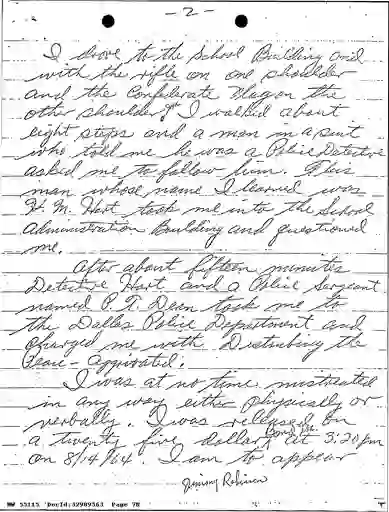 - 2 -
I drove to the School Building and
with the rifle on one shoulder
and the Confederate Flag on the
other shoulder I walked about
eight steps and a man in a suit
who told me he was a Police Detective
asked me to follow him. This
man whose name I learned was
H. M. Hart took me into the School
Administration Building and questioned
me.
After about fifteen minutes
Detective Hart and a Police Sergeant
named P. T. Dean took me to
the Dallas Police Department and
charged me with Disturbing the
Peace - Aggrivated.
I was at no time mistreated
in any way either physically or
verbally. I was released on
a twenty five dollar Bond at 3:20 pm
on 8/14/64. I am to appear
Jimmy Robinson
NW 55115 DocId:32989563 Page 78